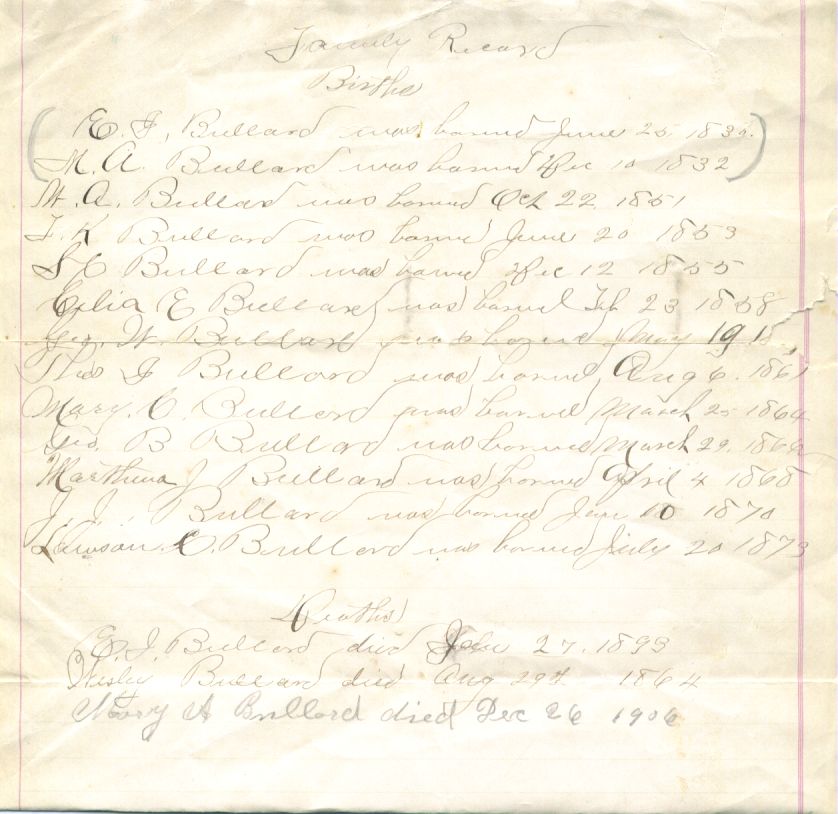 Family Record
Births
E. J. Bullard was borned June 25 183
M. A. Bullard was borned Dec 10 1832
W. A. Bullard was borned Oct 22 1851
J. K Bullard was borned June 20 1853
S C Bullard was borned Dec 12 1855
Celia E Bullard was borned Feb 23 1858
Geo. W. Bullard was borned May 19
Thos J Bullard was borned Aug 6. 1861
Mary. C. Bullard was borned March 25 1864
Geo B Bullard was borned March 29. 1866
J Bullard was borned April 4 1868
J. J. Bullard was borned Jan 10 1870
Lawson. C. Bullard was borned July 20 1873
Deaths
E. J. Bullard died 27. 1893
Wesley Bullard died Aug 29th 1864
Mary A Bullard died Dec 26 1906